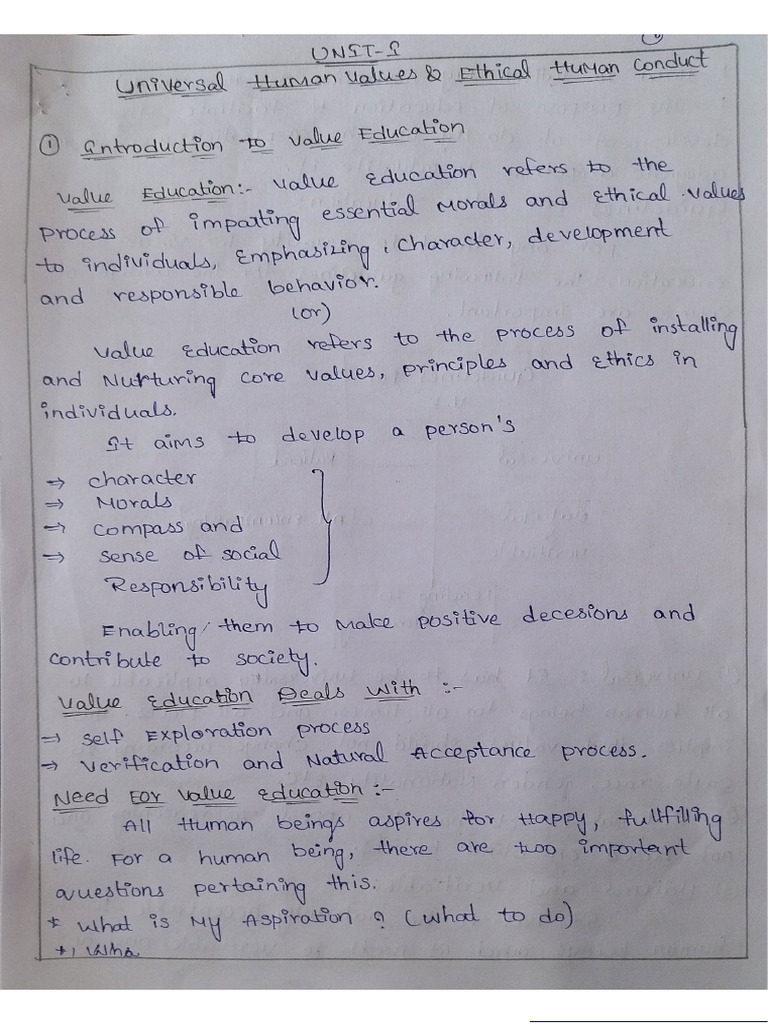 UNIT-I
Universal Human Values & Ethical Human Conduct
① Introduction to Value Education
Value Education:- Value Education refers to the
process of impatting essential Morals and Ethical values
to individuals, Emphasizing, character, development
and responsible behavior.
(or)
Value Education refers to the process of installing
and Nurturing core values, principles and Ethics in
individuals.
It aims to develop a person's
→ character
→ Morals
→ compass and
→ sense of social
Responsibility
Enabling them to Make positive decesions and
contribute to society.
Value Education Deals With :-
→ Self Exploration process
→ Verification and Natural Acceptance process.
Need For Value Education :-
All Human beings aspires for Happy, fullfilling
life. For a human being, there are two important
questions pertaining this.
* What is My Aspiration ? (What to do)
*